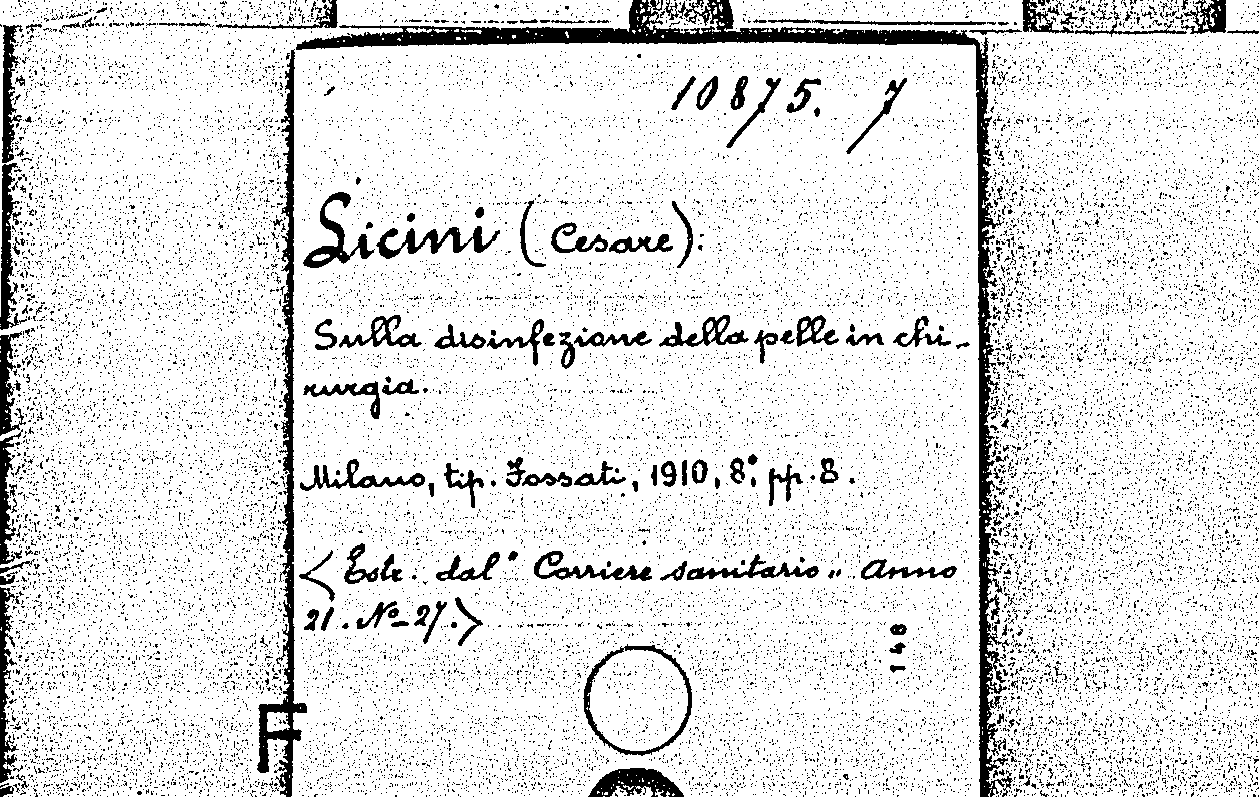 10875. 7
Licini (Cesare):
Sulla disinfezione della pelle in chi-
rurgia.
Milano, tip. Fossati, 1910, 8°, pp. 8.
<Estr. dal "Corriere sanitario„ Anno
21. No 27.>
148
F